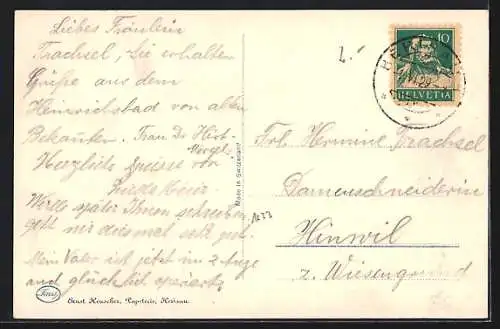 Liebes Fräulein
Trachsel, Sie erhalten
Grüße aus dem
Heinrichsbad von alten
Bekannten. Frau Dr Hirt-
Vogel
Herzliche Grüsse von
Werde später Ihnen schreiben,
geht mir diesmal sehr gut.
Mein Vater ist jetzt im
und glücklich
Ernst Heuscher, Papeterie, Herisau
Made in Switzerland
10
HELVETIA
Frl. Hermine Trachsel
Damenschneiderin
Hinwil
z. Wiesengrund